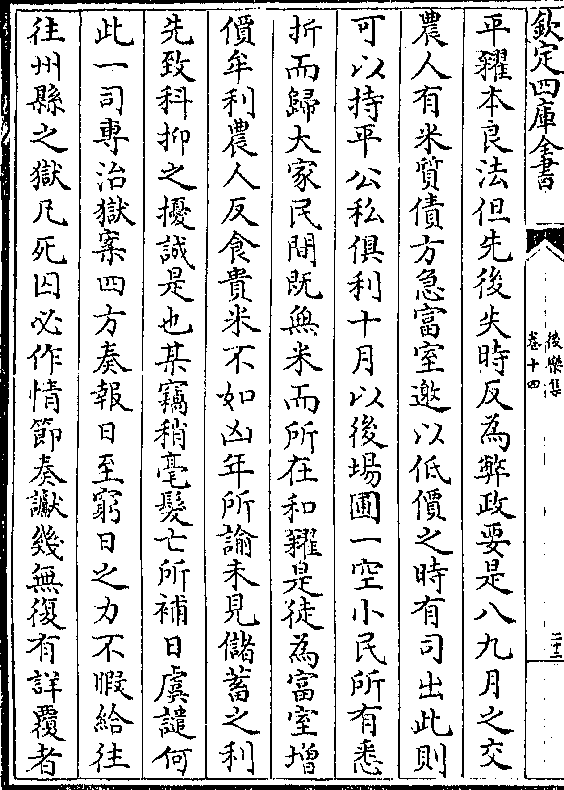 欽定四庫全書
後樂集
卷十四
二十三
平糴本良法但先後失時反為弊政要是八九月之交
農人有米質債方急富室邀以低價之時有司出此則
可以持平公私俱利十月以後場圃一空小民所有悉
折而歸大家民間既無米而所在和糴是徒為富室增
價牟利農人反食貴米不如凶年所諭未見儲蓄之利
先致科抑之擾誠是也某竊稍毫髮亡所補日虞譴何
此一司專治獄案四方奏報日至窮日之力不暇給往
往州縣之獄凡死囚必作情節奏讞幾無復有詳覆者